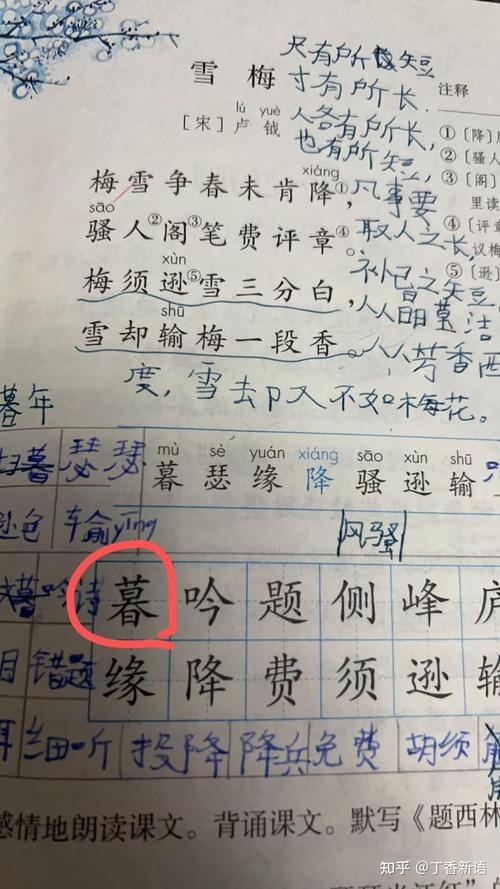 尺有所 矢豆
雪梅 寸有所长. 注释
lú yuè
[宋] 卢钺 人各有所长, ①〔降〕
也有所矢豆, ②〔骚人
xiáng
梅雪争春未肯降①, 凡事要 ③〔阁〕
sāo 里读
骚人②阁③笔费评章④。 取人之长, ④〔评章
xùn 议梅
梅须逊⑤雪三分白, 补己之矢豆 ⑤〔逊〕
shū
雪却输梅一段香。 人人芳香
度,雪去卩又不如梅花。
暮年
瑟瑟
mù sè yuán xiáng sāo xùn shū
暮 瑟 缘 降 骚 逊 输
色 车俞yíng
风骚
吟诗 暮 吟 题 侧 峰
错题 缘 降 费 须 逊 输
投降 降兵 免费 胡须
感情地朗读课文。背诵课文。默写《题西林
知乎 @丁香新语